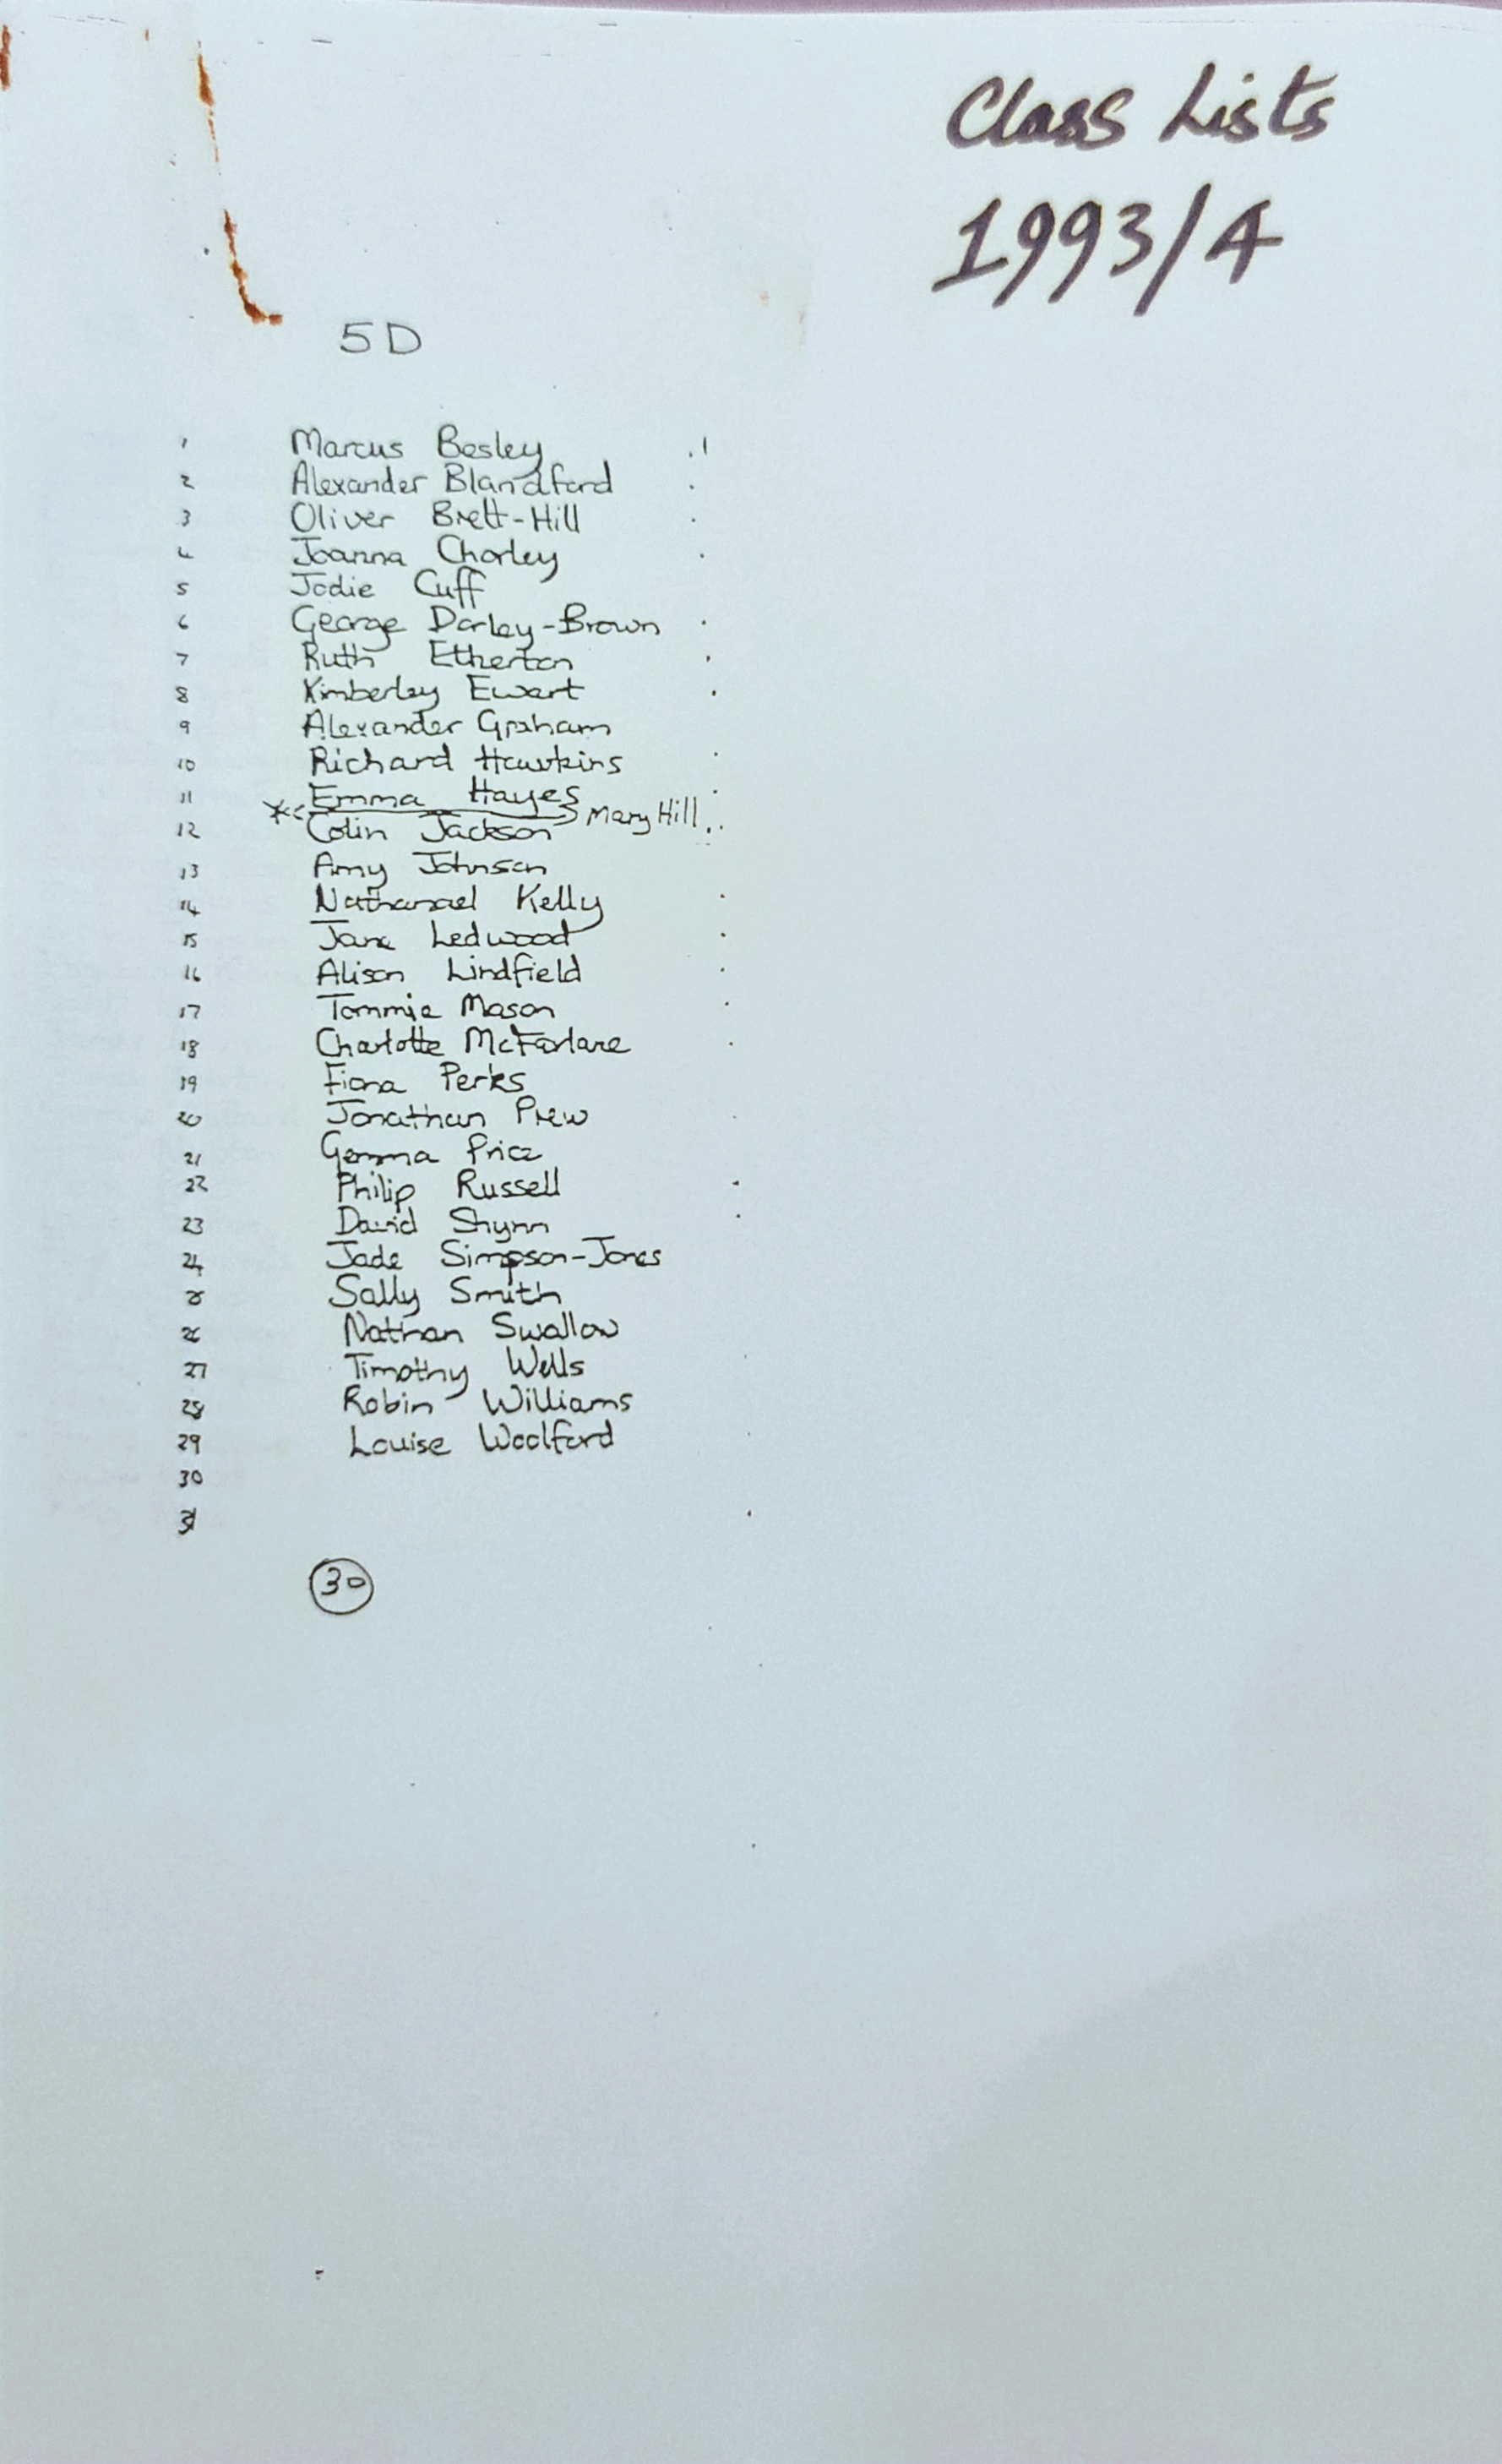 Class Lists
1993/4
5D
1 Marcus Besley
2 Alexander Blandford
3 Oliver Brett-Hill
4 Joanna Chorley
5 Jodie Cuff
6 George Darley-Brown
7 Ruth Etherton
8 Kimberley Ewart
9 Alexander Graham
10 Richard Hawkins
11 Emma Hayes
Mary Hill
12 Colin Jackson
13 Amy Johnson
14 Nathanael Kelly
15 Jane Ledwood
16 Alison Lindfield
17 Tommie Mason
18 Charlotte McFarlane
19 Fiona Perks
20 Jonathan Prew
21 Gemma Price
22 Philip Russell
23 David Shynn
24 Jade Simpson-Jones
25 Sally Smith
26 Nathan Swallow
27 Timothy Wells
28 Robin Williams
29 Louise Woolford
30
31
30